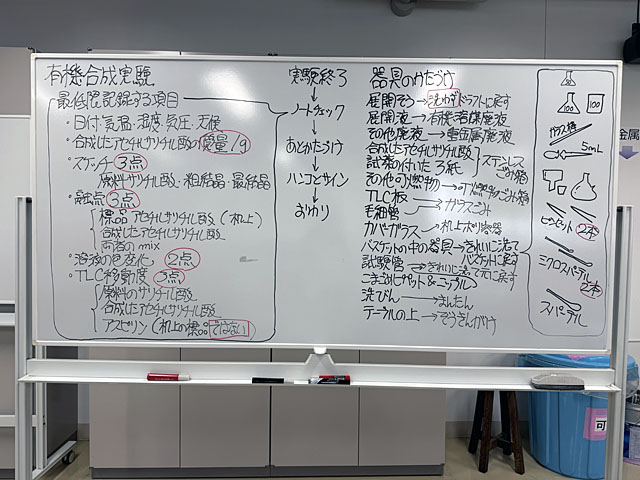 有機合成実験
最低限記録する項目
・日付・気温・湿度・気圧・天候
・合成したアセチルサリチル酸の質量/g
・スケッチ 3点
原料サリチル酸・粗結晶・最結晶
・融点 3点
標品アセチルサリチル酸(机上)
合成したアセチルサリチル酸
両者のmix
・溶液の色変化 2点
・TLC移動度 3点
原料のサリチル酸
合成したアセチルサリチル酸
アスピリン(机上の標品ではない)
実験終了
↓
ノートチェック
↓
あとかたづけ
↓
ハンコとサイン
↓
おわり
器具のかたづけ
展開そう→洗わずドラフトに戻す
展開液→有機溶媒廃液
その他廃液→重金属廃液
合成したアセチルサリチル酸
試薬の付いたろ紙
→ステンレスごみ箱
その他可燃物→可燃物ごみ箱
TLC板
毛細管
→ガラスごみ
カバーガラス→机上ポリ容器
バスケットの中の器具→きれいに洗って
バスケットに戻す
試験管→きれいに洗って元に戻す
こまごめピペット&ニップル
洗びん→まんたん
テーブルの上→ぞうきんがけ
50
100
100
ガラス棒
5mL
ピンセット 2本
ミクロスパテル
2本
スパテル
可
金属